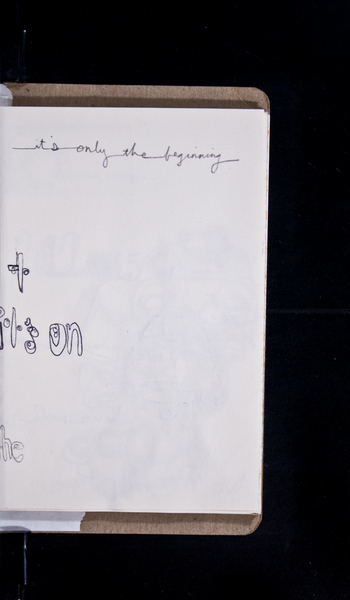 it's only the beginning
t
its on
he